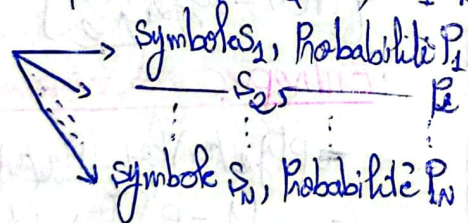 symbole S₁, Probabilité P₁
S₂, P₂
symbole S_N, Probabilité P_N